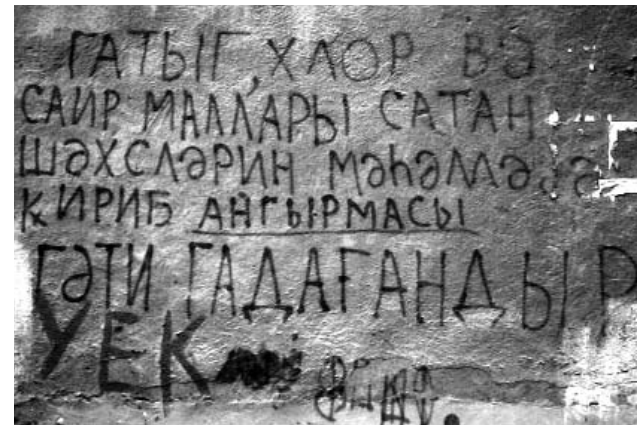 ГАТЫГ, ХЛОР ВӘ
САИР МАЛЛАРЫ САТАН
ШӘХСЛӘРИН МӘҺӘЛЛӘЈӘ
ҜИРИБ АНГЫРМАСЫ
ГӘТИ ГАДАҒАНДЫР
УЕК